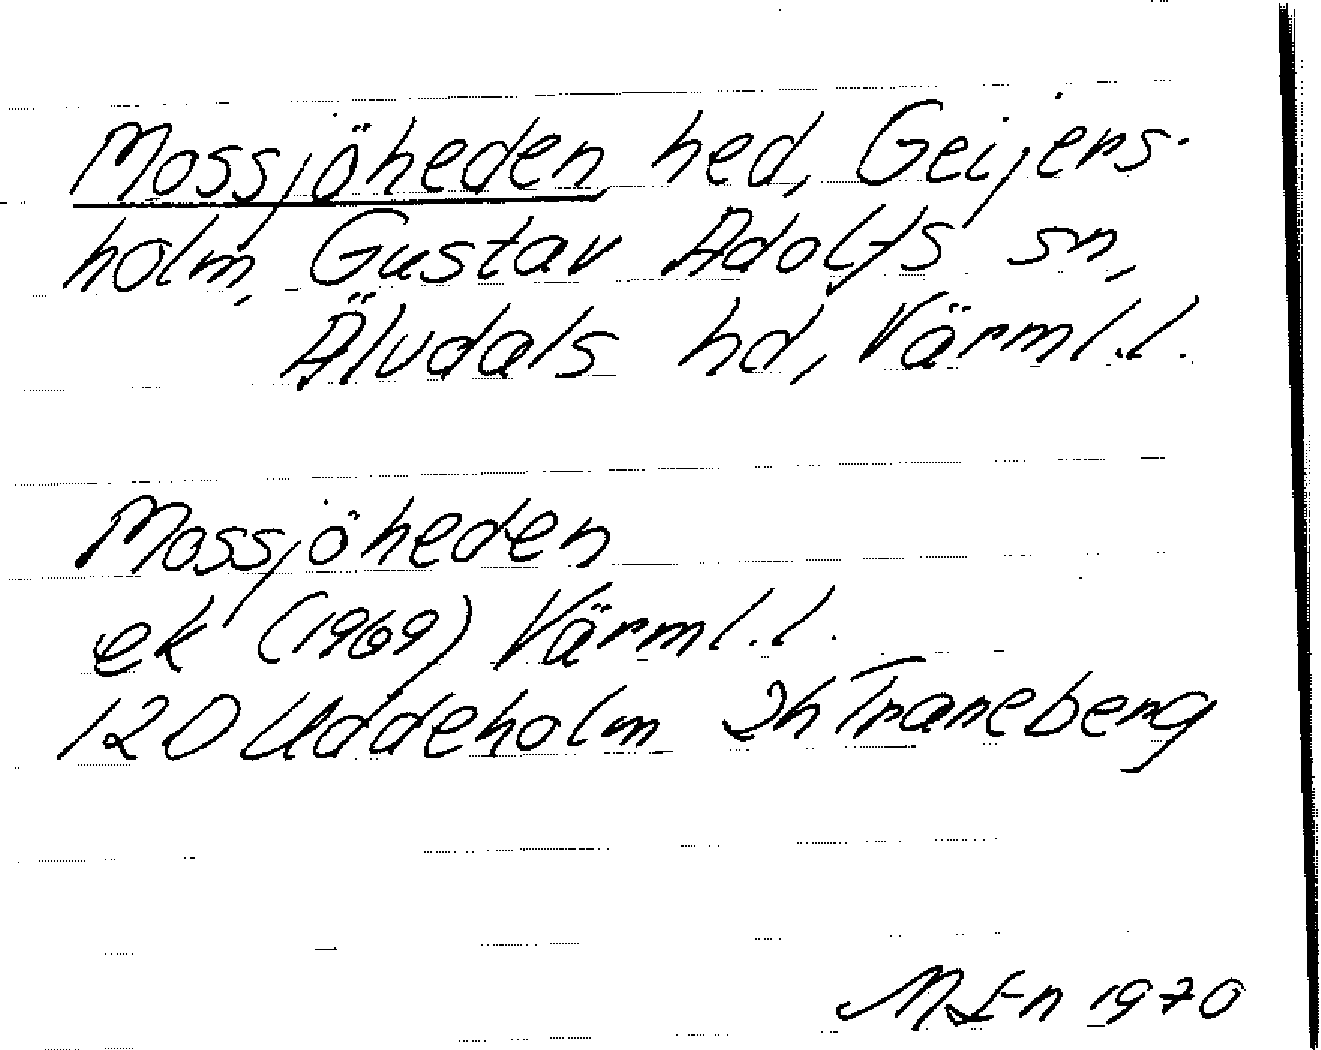 Mossjöheden hed, Geijers-
holm, Gustav Adolfs sn,
Älvdals hd, Värml.l.
Mossjöheden
ek (1969) Värml.l.
12D Uddeholm Traneberg
1970